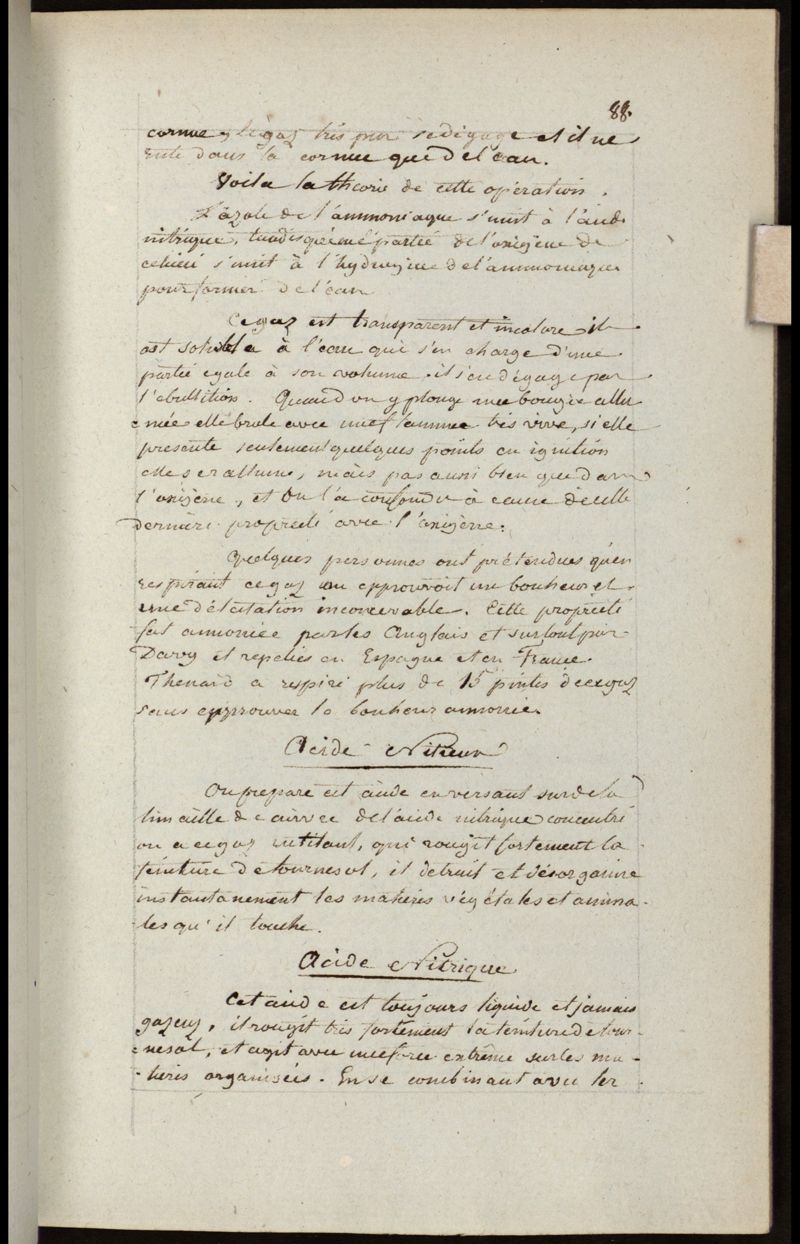 88.
cornue, le gaz très pur se dégage et il ne
reste dans la cornue que de l'eau.
Voila la théorie de cette opération.
L'azote de l'ammoniaque s'unit à l'acide
nitrique, tandis qu'une partie de l'oxigène de
celui ci s'unit à l'hydrogène de l'ammoniaque
pour former de l'eau
Ce gaz est transparent et incolore il
est soluble à l'eau qui s'en charge d'une
partie egale à son volume. il s'en dégage par
l'ebullition. Quand on y plonge une bougie allu
mée elle brule avec une flamme très vive, si elle
presente seulement quelques points en ignition
elle se rallume, mais pas aussi bien que dans
l'oxigène, et on l'a confondu à cause de cette
dernière propriété avec l'oxigène.
Quelques personnes ont prétendues qu'en
respirant ce gaz on epprouvoit un bonheur et
une délectation inconcevable. Cette propriété
fut annoncée par les Anglais et surtout par
Davy et repetées en Espagne et en France.
Thenard a respiré plus de 15 pintes de ce gaz
sans epprouver le bonheur annoncé.
Acide Nitreux
On prepare cet acide en versant sur de la
limaille de cuivre de l'acide nitrique concentré
on a ce gaz rutilant, qui rougit fortement la
teinture de tournesol, il detruit et désorganise
instantanement les matieres végétales et anima
les qu'il touche.
Acide Nitrique
Cet acide est toujours liquide et jamais
gazeux, il rougit très fortement la teinture de tour-
nesol, et agit avec une force extrême sur les ma-
tieres organisées. En se combinant avec les